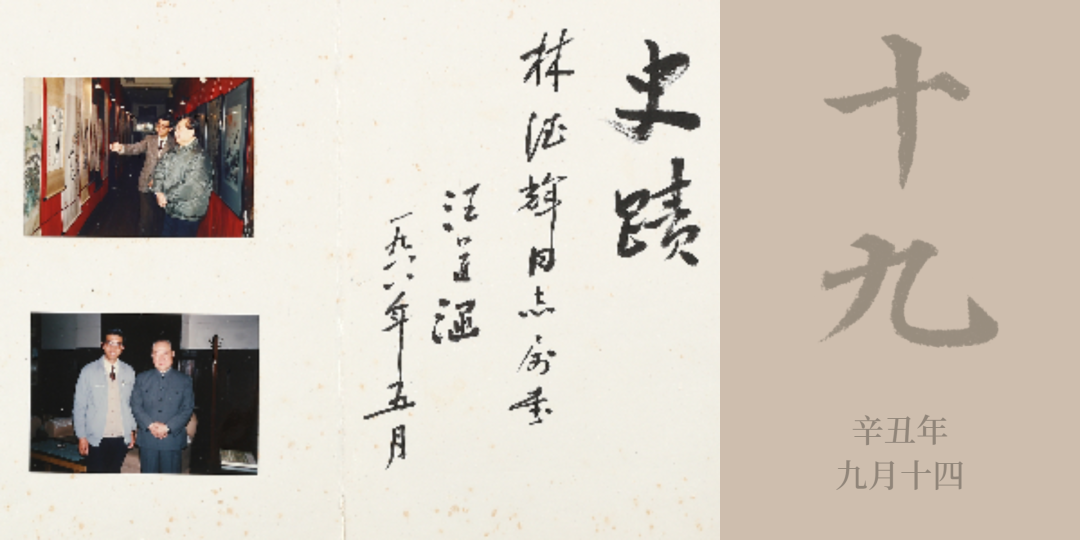 史蹟
林德辉同志属书
汪道涵
一九八八年五月
十九
辛丑年
九月十四